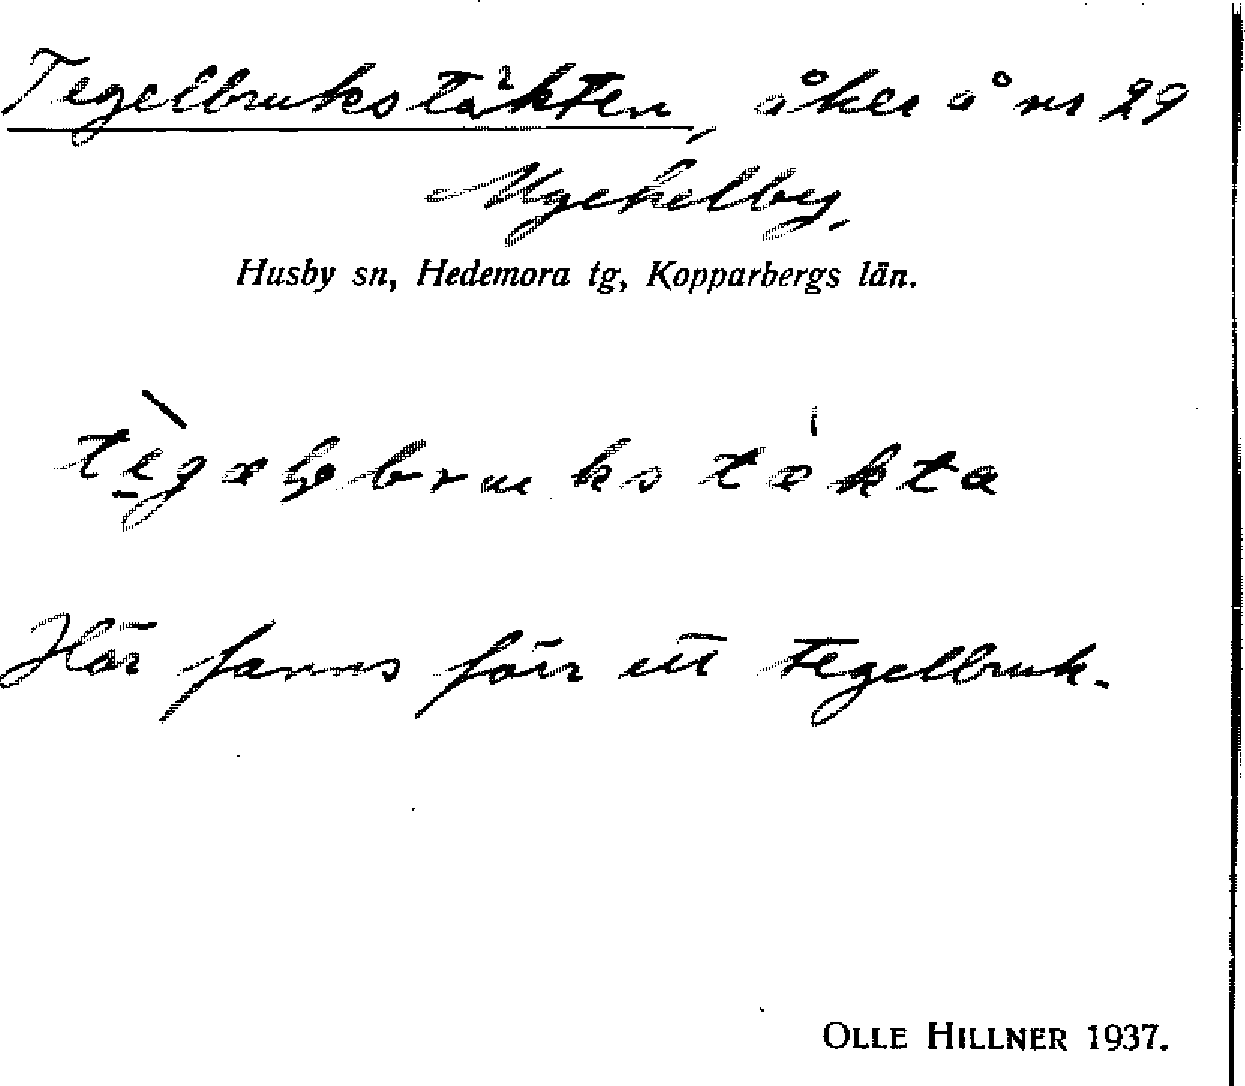 Tegelbrukstäkten, åker å nr 29
Myckelby.
Husby sn, Hedemora tg, Kopparbergs län.
tègəlbruks tækta
Här fanns förr ett tegelbruk.
OLLE HILLNER 1937.